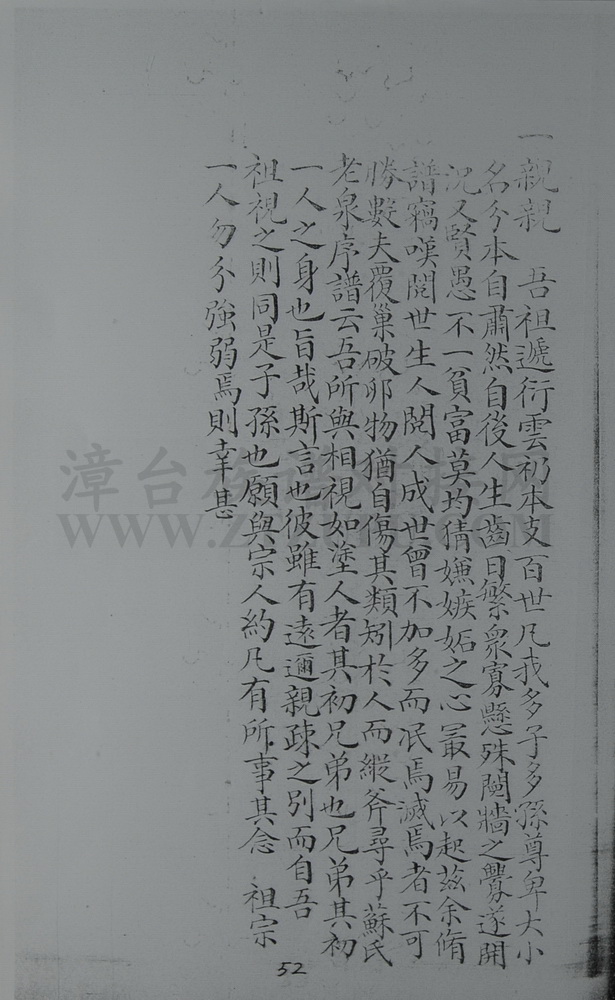 一親親　吾祖遞衍雲礽本支百世凡我多子多孫尊卑大小
名分本自肅然自後人生齒日繁衆寡懸殊鬩牆之釁遂開
況又賢愚不一貧富莫均猜嫌嫉妬之心最易以起茲余脩
譜竊嘆閱世生人閱人成世曾不加多而泯焉滅焉者不可
勝數夫覆巢破卵物猶自傷其類矧於人而縱斧尋乎蘇氏
老泉序譜云吾所與相視如塗人者其初兄弟也兄弟其初
一人之身也旨哉斯言也彼雖有遠邇親疎之別而自吾
祖視之則同是子孫也願與宗人約凡有所事其念　祖宗
一人勿分強弱焉則幸甚
52
漳台
www.z